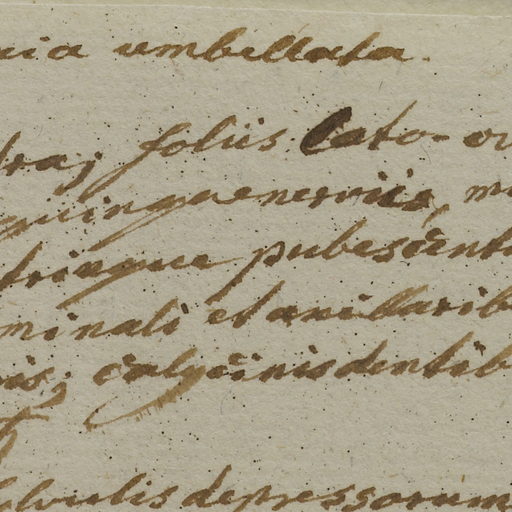 nia umbellata.
tra; foliis lato-ov
quinquenerviis, m
trinque pubescent
minali et axillarib
is; calycinis dentib
lvulis depressorum